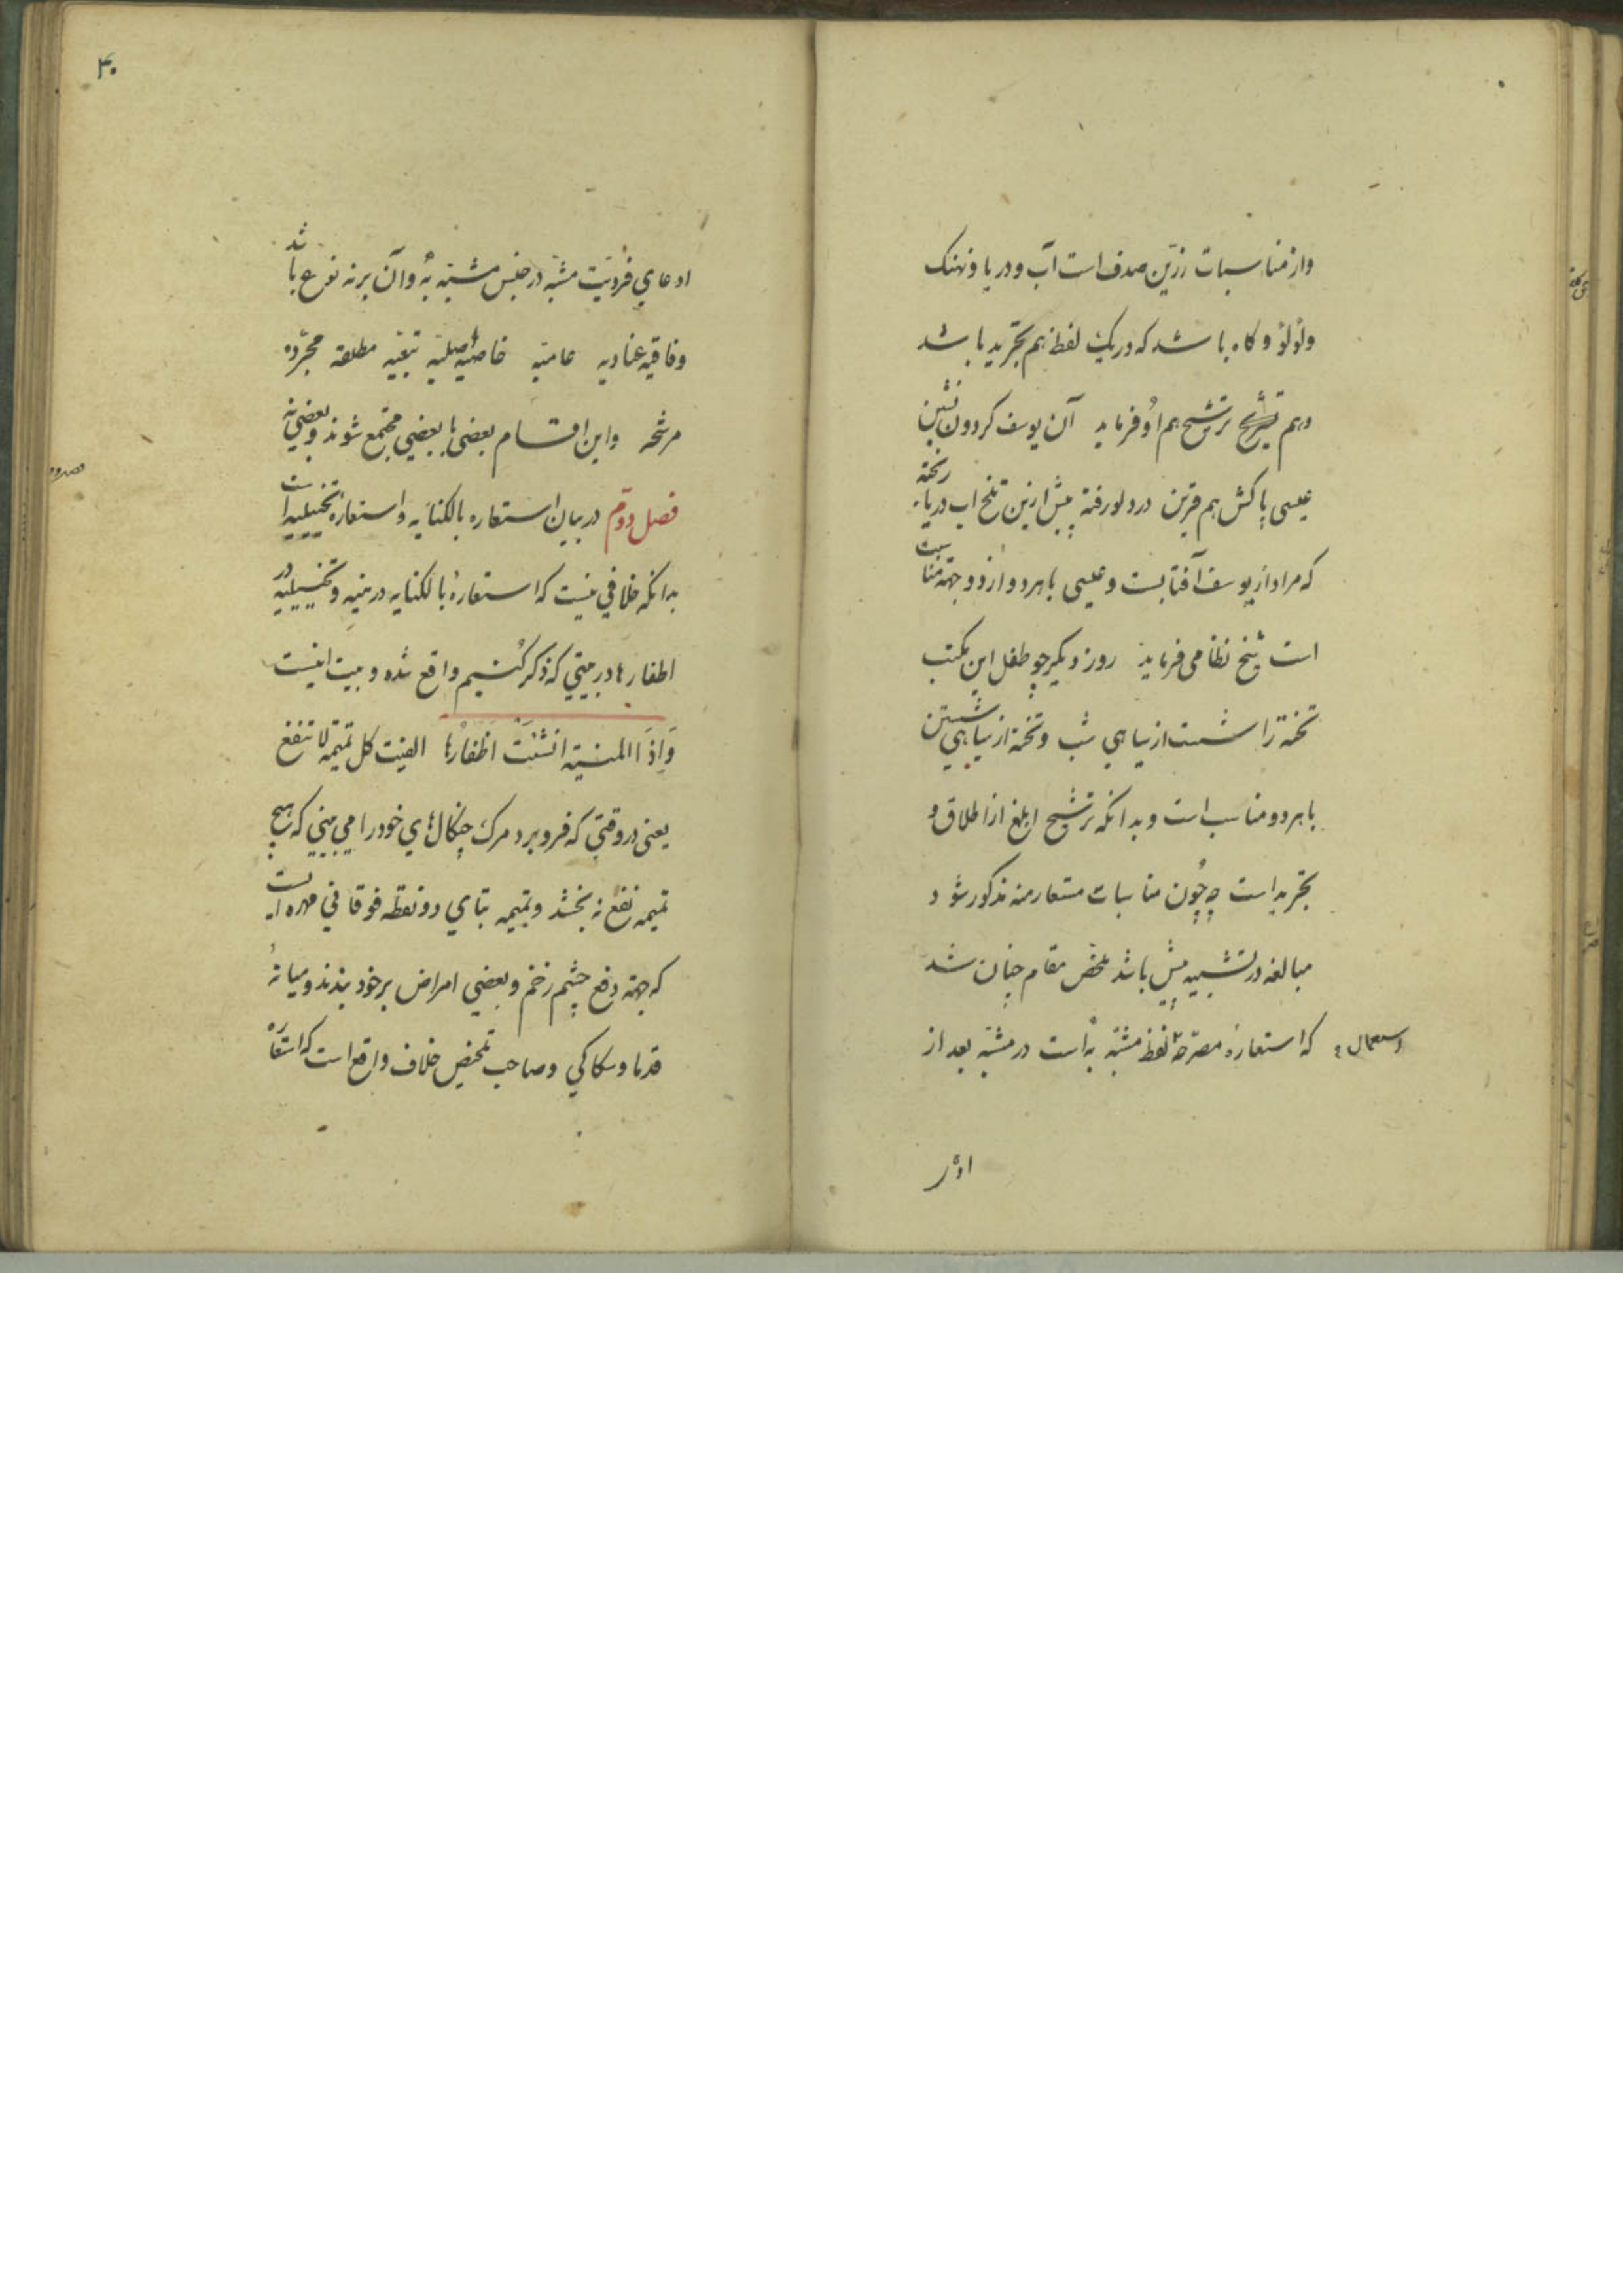 واز مناسبات زرّین صدف است آب و دریا و نهنک
ولؤلؤ و کاه باشد که در یک لفظ هم تجرید باشد
و هم ترشیح هم او فرماید آن یوسف کردون نشین
عیسی پاکش هم قرین در دلو رفته پیش ازین تلخ اب دریا ریخته
که مراد از یوسف آفتابست و عیسی باهر دو از دو جهة مناسبت
است شیخ نظامی فرماید روز دیکر چو طفل این مکتب
تخته را شست از سیاهي شب و تخته از سیاهي شستن
باهر دو مناسب است و بدانکه ترشیح ابلغ از اطلاق و
تجرید است چه چون مناسبات مستعار منه مذکور شود
مبالغه در تشبیه بیش باشد ملخص مقام چنان شد
که استعارۀ مصرّحه لفظ مشبّه به است در مشبّه بعد از
واستعمال
۴۰
ادعاي فردیّت مشبّه در جنس مشبّه به و آن بر نه نوع باشد
وفاقیه عنادیه عامیّه خاصیّه اصلیّه تبعیّه مطلقه مجرّده
مرشحه واین اقسام بعضی با بعضي مجتمع شوند و بعضي نه
فصل دوّم در بیان استعاره بالکنایه و استعارۀ تخییلیه است
بدانکه خلافي نیست که استعارۀ بالکنایه در منیه و تخییلیه در
اظفارها در بیتي که ذکر کنیم واقع شده و بیت اینست
وَاِذَا المنیة انشَبَت اظفارَها الفیت کل تمیمه لا تنفع
یعنی در وقتي که فرو برد مرک چنکال هاي خود را مي بیني که هیچ
تمیمه نفع نه بخشد و تمیمه بتاي دو نقطه فوقاني مهره ایست
که جهة دفع چشم زخم و بعضي امراض بر خود بندند و میانۀ
قدما و سکاکي و صاحب تلخیص خلاف واقع است که استعا